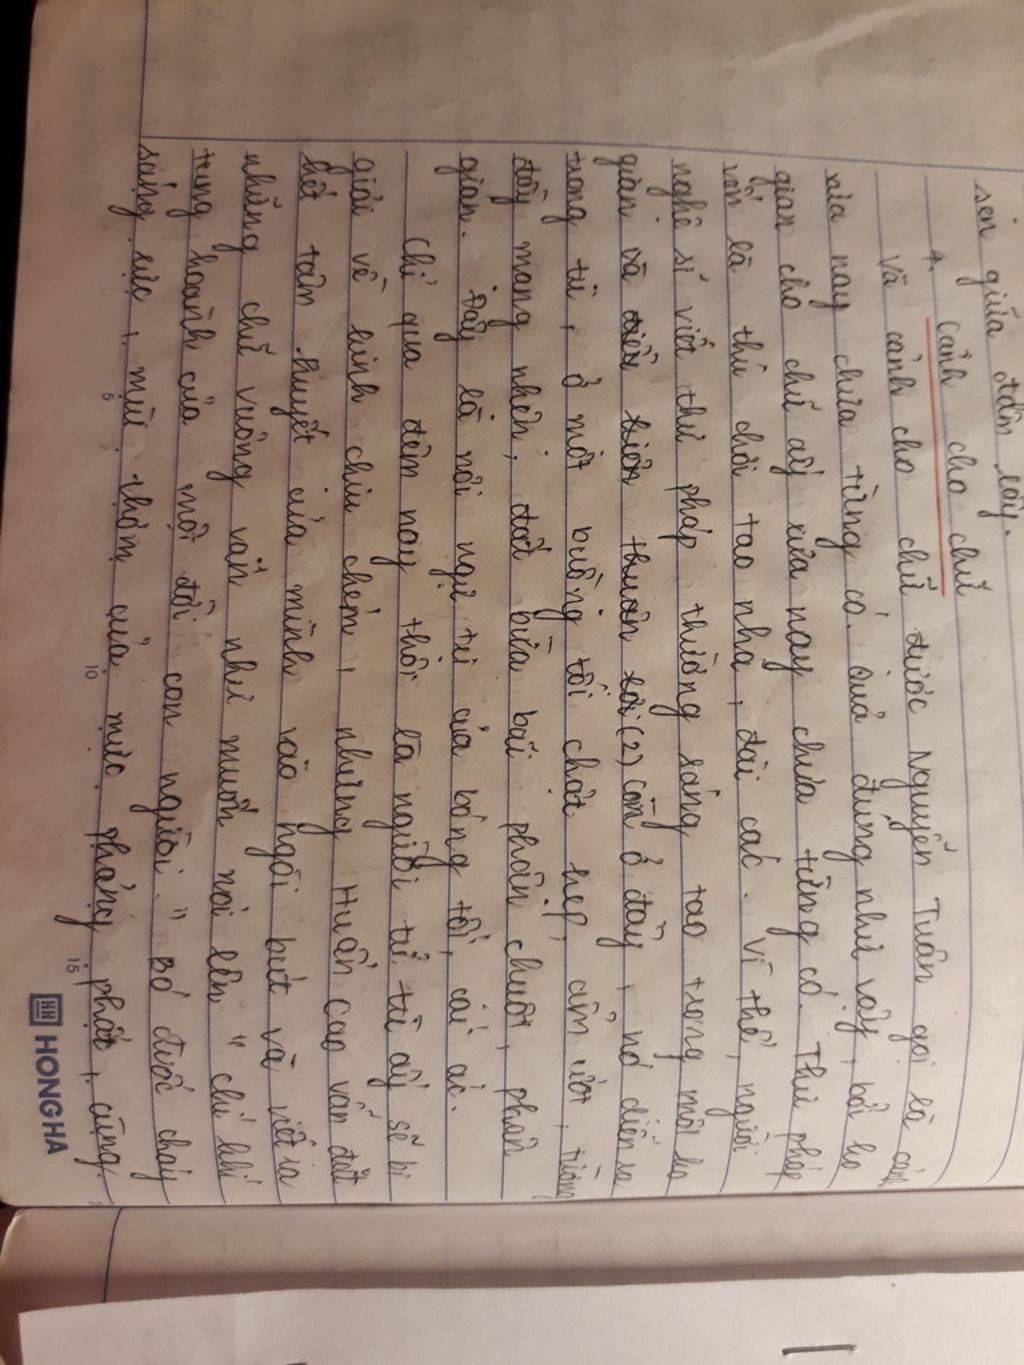 sen giữa đầm lầy.
4. Cảnh cho chữ
Và cảnh cho chữ được Nguyễn Tuân gọi là cảnh
xưa nay chưa từng có. Quả đúng như vậy, bởi ko
gian cho chữ ấy xưa nay chưa từng có. Thư pháp
vốn là thú chơi tao nhã, đài các. Vì thế, người
nghệ sĩ viết thư pháp thường sáng tạo trong một ko
gian và điều kiện thuận lợi (2) Còn ở đây, nó diễn ra
trong tù, ở một buồng tối chật hẹp, ẩm ướt, tường
đầy mạng nhện, đất bừa bãi phân chuột, phân
gián. Đây là nơi ngự trị của bóng tối, cái ác.
Chỉ qua đêm nay thôi là người tử tù ấy sẽ bị
giải về kinh chịu chém, nhưng Huấn Cao vẫn dắt
hết tâm huyết của mình vào ngòi bút và viết ra
những chữ vuông vắn như muốn nói lên " chí khí
tung hoành của một đời con người." Bó đuốc cháy
sáng rực, mùi thơm của mực phảng phất, cùng
5
10
15
HONG HA